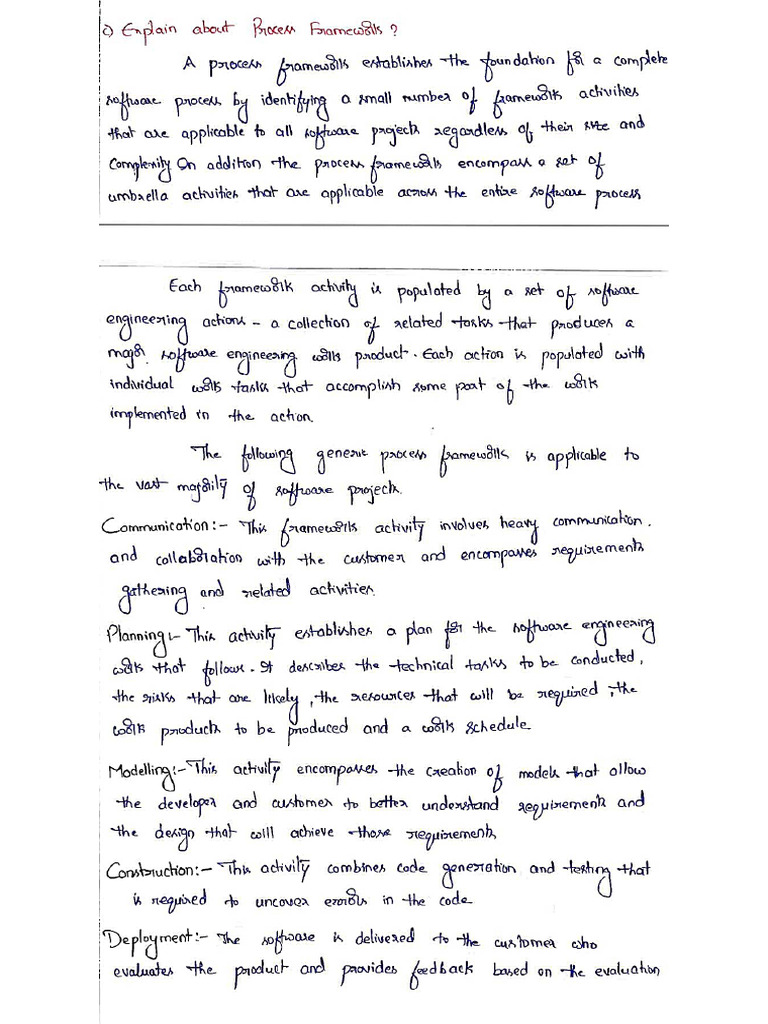 c) Explain about Process Frameworks?
A process frameworks establishes the foundation for a complete
software process by identifying a small number of framework activities
that are applicable to all software projects regardless of their size and
Complexity In addition the process framework encompass a set of
umbrella activities that are applicable across the entire software process
Each framework activity is populated by a set of software
engineering actions - a collection of related tasks that produces a
major software engineering work product. Each action is populated with
individual work tasks that accomplish some part of the work
implemented in the action.
The following generic process framework is applicable to
the vast majority of software projects.
Communication:- This framework activity involves heavy communication.
and collaboration with the customer and encompasses requirements
gathering and related activities.
Planning:- This activity establishes a plan for the software engineering
work that follows. It describes the technical tasks to be conducted,
the risks that are likely, the resources that will be required, the
work products to be produced and a work schedule.
Modelling:- This activity encompasses the creation of models that allow
the developer and customer to better understand requirements and
the design that will achieve those requirements
Construction:- This activity combines code generation and testing that
is required to uncover errors in the code.
Deployment:- The software is delivered to the customer who
evaluates the product and provides feedback based on the evaluation